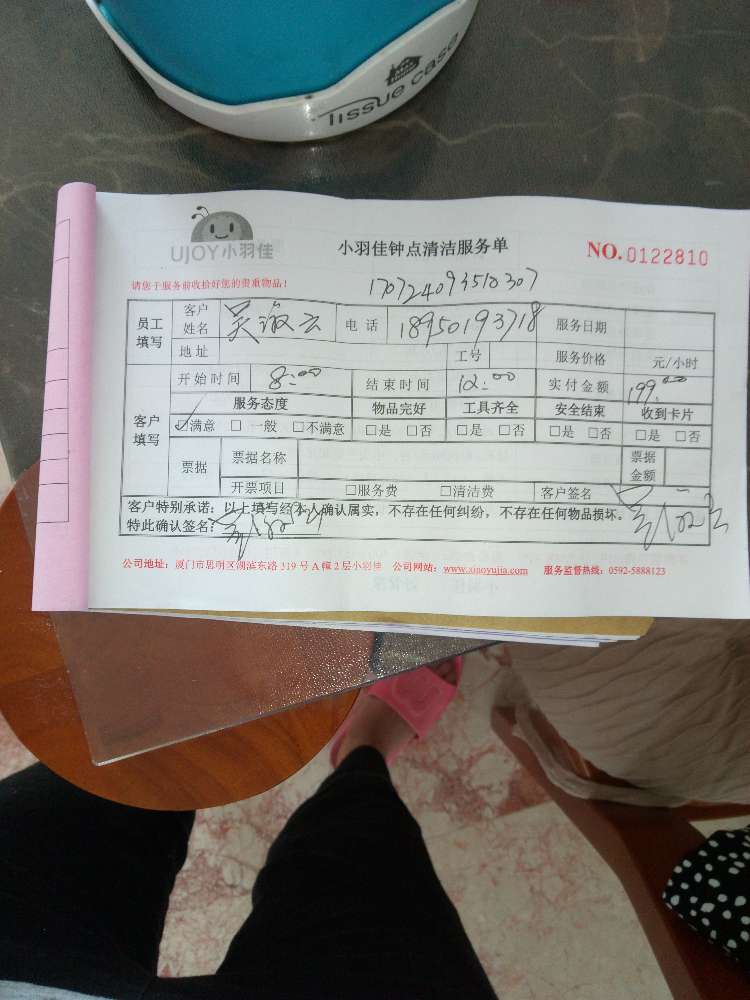 Tissue case
UJOY小羽佳
小羽佳钟点清洁服务单
NO. 0122810
请您于服务前收拾好您的贵重物品！
170724093510307
员工填写 客户姓名 吴淑云 电话 18950193718 服务日期
地址 工号 服务价格 元/小时
客户填写 开始时间 8:00 结束时间 12:00 实付金额 199.00
服务态度 物品完好 工具齐全 安全结束 收到卡片
☑满意 □一般 □不满意 □是 □否 □是 □否 □是 □否 □是 □否
票据 票据名称 票据金额
开票项目 □服务费 □清洁费 客户签名
客户特别承诺：以上填写经本人确认属实，不存在任何纠纷，不存在任何物品损坏。
特此确认签名：
公司地址：厦门市思明区湖滨东路 319 号 A 幢 2 层小羽佳 公司网站：www.xiaoyujia.com 服务监督热线：0592-5888123